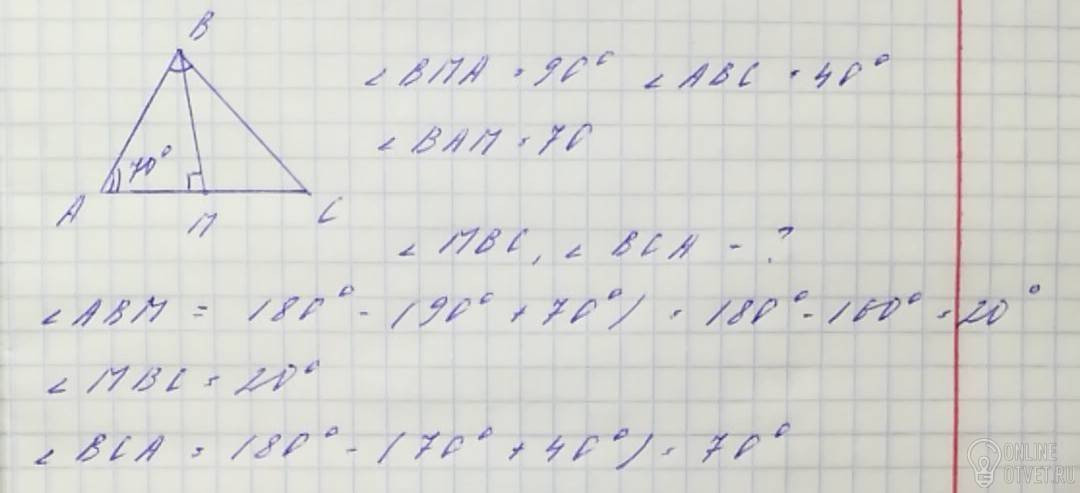 B
∠BMA = 90° ∠ABC = 40°
∠BAM = 70
70°
A M C
∠MBC, ∠BCA - ?
∠ABM = 180° - (90° + 70°) = 180° - 160° = 20°
∠MBC = 20°
∠BCA = 180° - (70° + 40°) = 70°
ONLINE
OTVET.RU